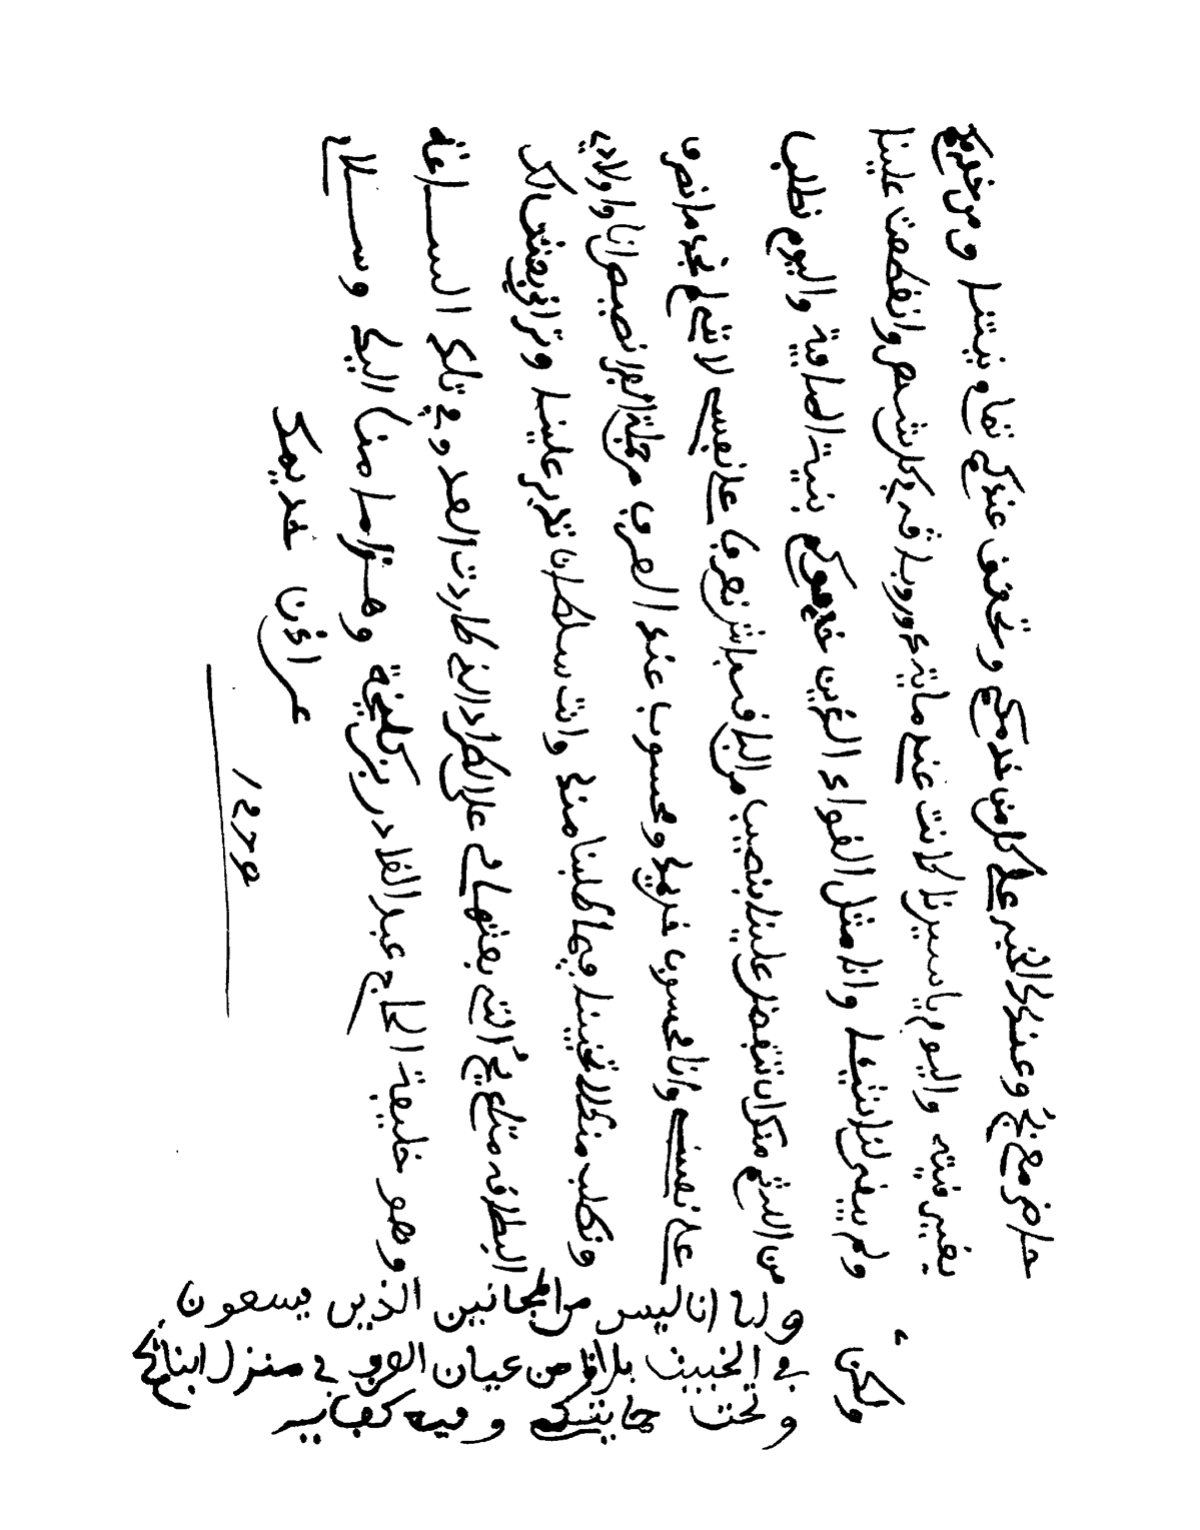 حاضر مع بج وعندك الخبر على كل من خدمكم وتحقق عندكم ثما وبيتنا ومن خدمكم
بغير فيته واليوم يا سيرنا كانت عنده مائة دورو باقه في كل شهر وانقطعت علينا
ولم يبقى لنا انتيقا وانا مثل القواد الذين خدموكم بنية الصافية واليوم نطلب
من الله ثم منك ان تتفضل علينا بنصيب من الباقي باش نصرف على نفسي لانى لم نجد ما نصرف
على نفسي وانا محسوب خديم ومحسوب عند العرب من جملة الفرانصيص انا واولادي
ونطلب منك لا تخيبنا فيما طلبنا منك وانت سلطان تدبر علينا وتراني بعثت لك
البطاقه متاع بج التي بعثها لي على الطراد الذي طاردت العدو في تلك الساعة
وهو خليفة الحاج عبد القادر بن كليخة وهذا ما منا اليك وسلام
خديمك
ولكن
وانا انا ليس من المجانين الذين يسعون
في الخبيث من عيان العرب في منزل ابنائكم
وتحت حمايتكم وفيه كفاية